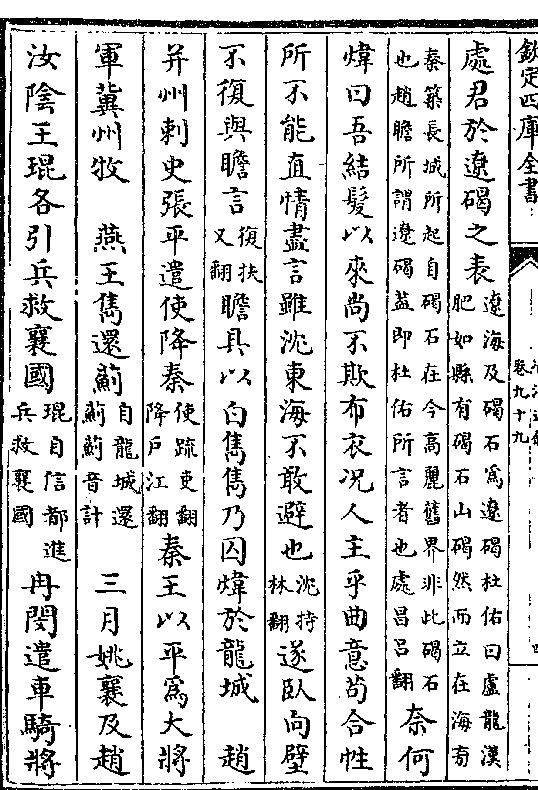 欽定四庫全書
卷九十九
處君於遼碣之表遼海及碣石爲遼碣杜佑曰盧龍漢肥如縣有碣石山碣然而立在海旁
秦築長城所起自碣石在今高麗舊界非此碣石也趙瞻所謂遼碣葢即杜佑所言者也處昌吕翻奈何
煒曰吾結髮以來尚不欺布衣况人主乎曲意苟合性
所不能直情盡言雖沈東海不敢避也沈持林翻遂臥向壁
不復與瞻言復扶又翻瞻具以白儁儁乃囚煒於龍城　趙
并州刺史張平遣使降秦使疏吏翻降戶江翻秦王以平爲大將
軍冀州牧　燕王儁還薊自龍城還薊薊音計　三月姚襄及趙
汝陰王琨各引兵救襄國琨自信都進兵救襄國冉閔遣車騎將